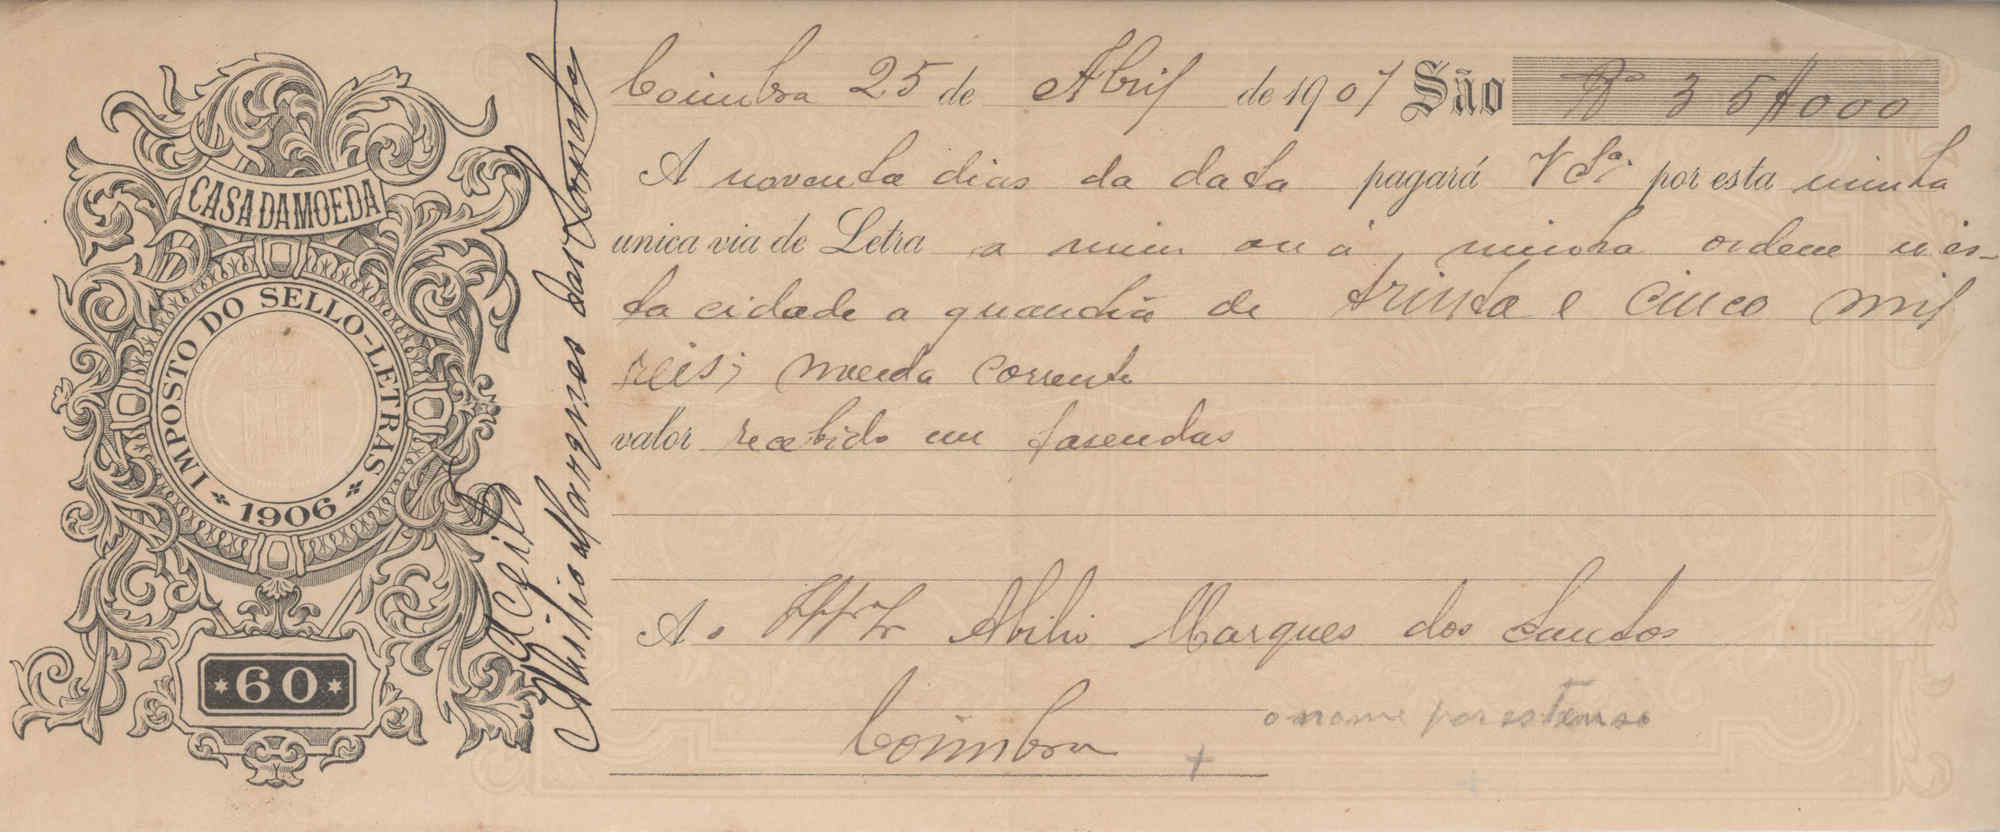 CASA DA MOEDA
IMPOSTO DO SELLO-LETRAS
1906
*60*
Aceito
Abilio Marques dos Santos
Coimbra 25 de Abril de 1907 São Rs 35$000
A noventa dias da data pagará V Sª por esta minha
unica via de Letra a mim ou á minha ordem n'es-
ta cidade a quantia de trinta e cinco mil
reis; moeda corrente
valor recebido em fasendas
Ao Abilio Marques dos Santos
Coimbra
o nome por estenso